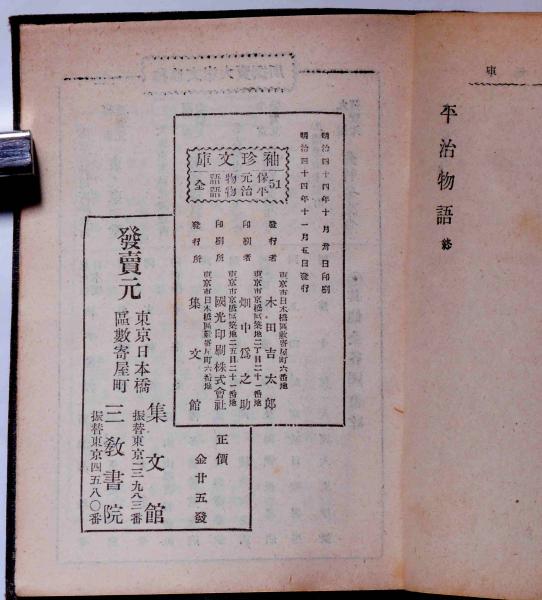 庫
平治物語 終
明治四十四年十月卅日印刷
明治四十四年十一月五日發行
袖珍文庫
51
保元物語
平治物語
全
發行者
東京市日本橋區數寄屋町六番地
木田吉太郎
印刷者
東京市京橋區築地二丁目二十一番地
畑中爲之助
印刷所
東京市京橋區築地二丁目二十一番地
國光印刷株式會社
發行所
東京市日本橋區數寄屋町六番地
集文館
正價
金廿五錢
發賣元
東京日本橋
區數寄屋町
集文館
振替東京一三九八三番
三教書院
振替東京四五八〇番